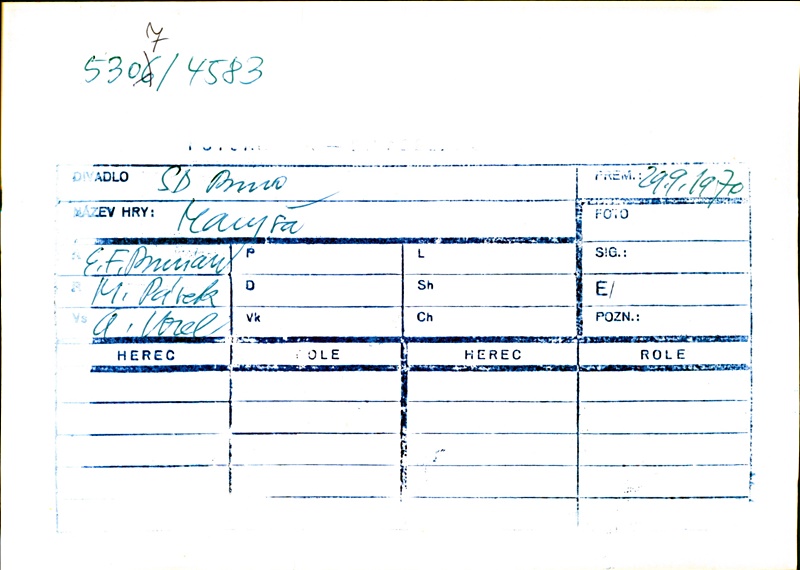 7
5306/4583
DIVADLO SD Brno PREM.: 29.9.1970
NÁZEV HRY: Maryša FOTO
E.F. Burian P L SIG.:
R M. Pásek D Sh E/
Vs A. Vorel Vk Ch POZN.:
HEREC ROLE HEREC ROLE